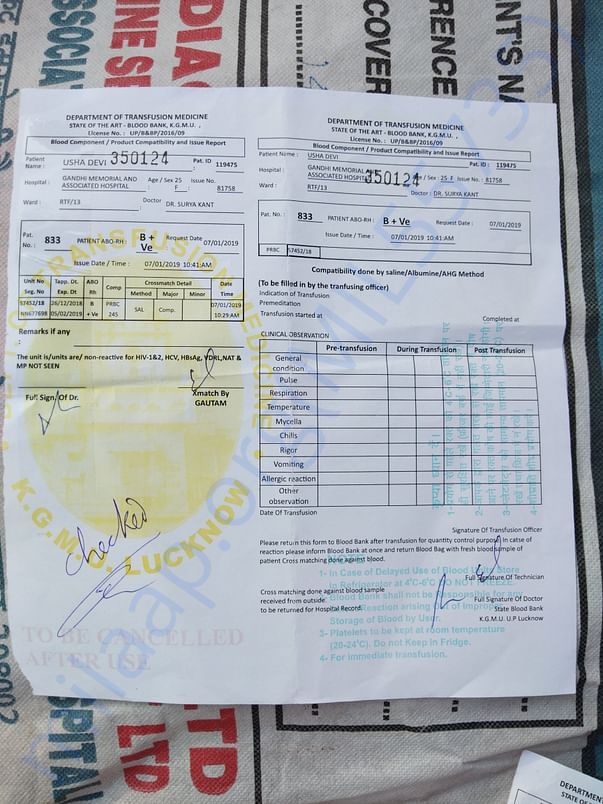 DEPARTMENT OF TRANSFUSION MEDICINE
STATE OF THE ART - BLOOD BANK, K.G.M.U. ,
License No. : UP/B&BP/2016/09
Blood Component / Product Compatibility and Issue Report
Patient Name : USHA DEVI 350124 Pat. ID : 119475
Hospital : GANDHI MEMORIAL AND ASSOCIATED HOSPITAL Age / Sex 25 F Issue No. : 81758
Ward : RTF/13 Doctor : DR. SURYA KANT
Pat. No. : 833 PATIENT ABO-RH : B + Ve Request Date : 07/01/2019
Issue Date / Time : 07/01/2019 10:41:AM
Unit No Seg. No Tapp. Dt. Exp. Dt ABO Rh Comp Crossmatch Detail Date Time
Method Major Minor
57452/18 26/12/2018 B PRBC SAL Comp. 07/01/2019
NN677698 05/02/2019 + Ve 245 10:29:AM
Remarks if any
:
The unit is/units are/ non-reactive for HIV-1&2, HCV, HBsAg, VDRL,NAT &
MP NOT SEEN
Full Sign. Of Dr. Xmatch By
GAUTAM
checked
K.G.M.U. LUCKNOW
TO BE CANCELLED
AFTER USE
DEPARTMENT OF TRANSFUSION MEDICINE
STATE OF THE ART - BLOOD BANK, K.G.M.U. ,
License No. : UP/B&BP/2016/09
Blood Component / Product Compatibility and Issue Report
Patient Name : USHA DEVI Pat. ID : 119475
Hospital : GANDHI MEMORIAL AND ASSOCIATED HOSPITAL 350124 / Sex : 25 F Issue No. : 81758
Ward : RTF/13 Doctor : DR. SURYA KANT
Pat. No. : 833 PATIENT ABO-RH : B + Ve Request Date : 07/01/2019
Issue Date / Time : 07/01/2019 10:41:AM
PRBC 57452/18
Compatibility done by saline/Albumine/AHG Method
(To be filled in by the tranfusing officer)
Indication of Transfusion
Premeditation
Transfusion started at
Completed at
CLINICAL OBSERVATION
Pre-transfusion During Transfusion Post Transfusion
General condition
Pulse
Respiration
Temperature
Mycella
Chilis
Rigor
Vomiting
Allergic reaction
Other observation
Date Of Transfusion
Signature Of Transfusion Officer
Please return this form to Blood Bank after transfusion for quantity control purpose. In catse of
reaction please inform Blood Bank at once and return Blood Bag with fresh blood sample of
patient Cross matching done against blood.
NOTE:
1- In Case of Delayed Use of Blood Units Store
in Refrigerator at 4°C-6°C DO NOT FREEZE.
Full Signature Of Technician
Cross matching done against blood sample
received from outside.
to be returned for Hospital Record.
Blood Bank shall not be Responsible for any
Reaction arising Out of Improper
Storage of Blood by User.
Full Signature Of Doctor
State Blood Bank
K.G.M.U. U.P Lucknow
3- Platelets to be kept at room temperature
(20-24°C). Do not Keep in Fridge.
4- For immediate transfusion.
COVER
LTD
DEPARTMEN
STATE OF